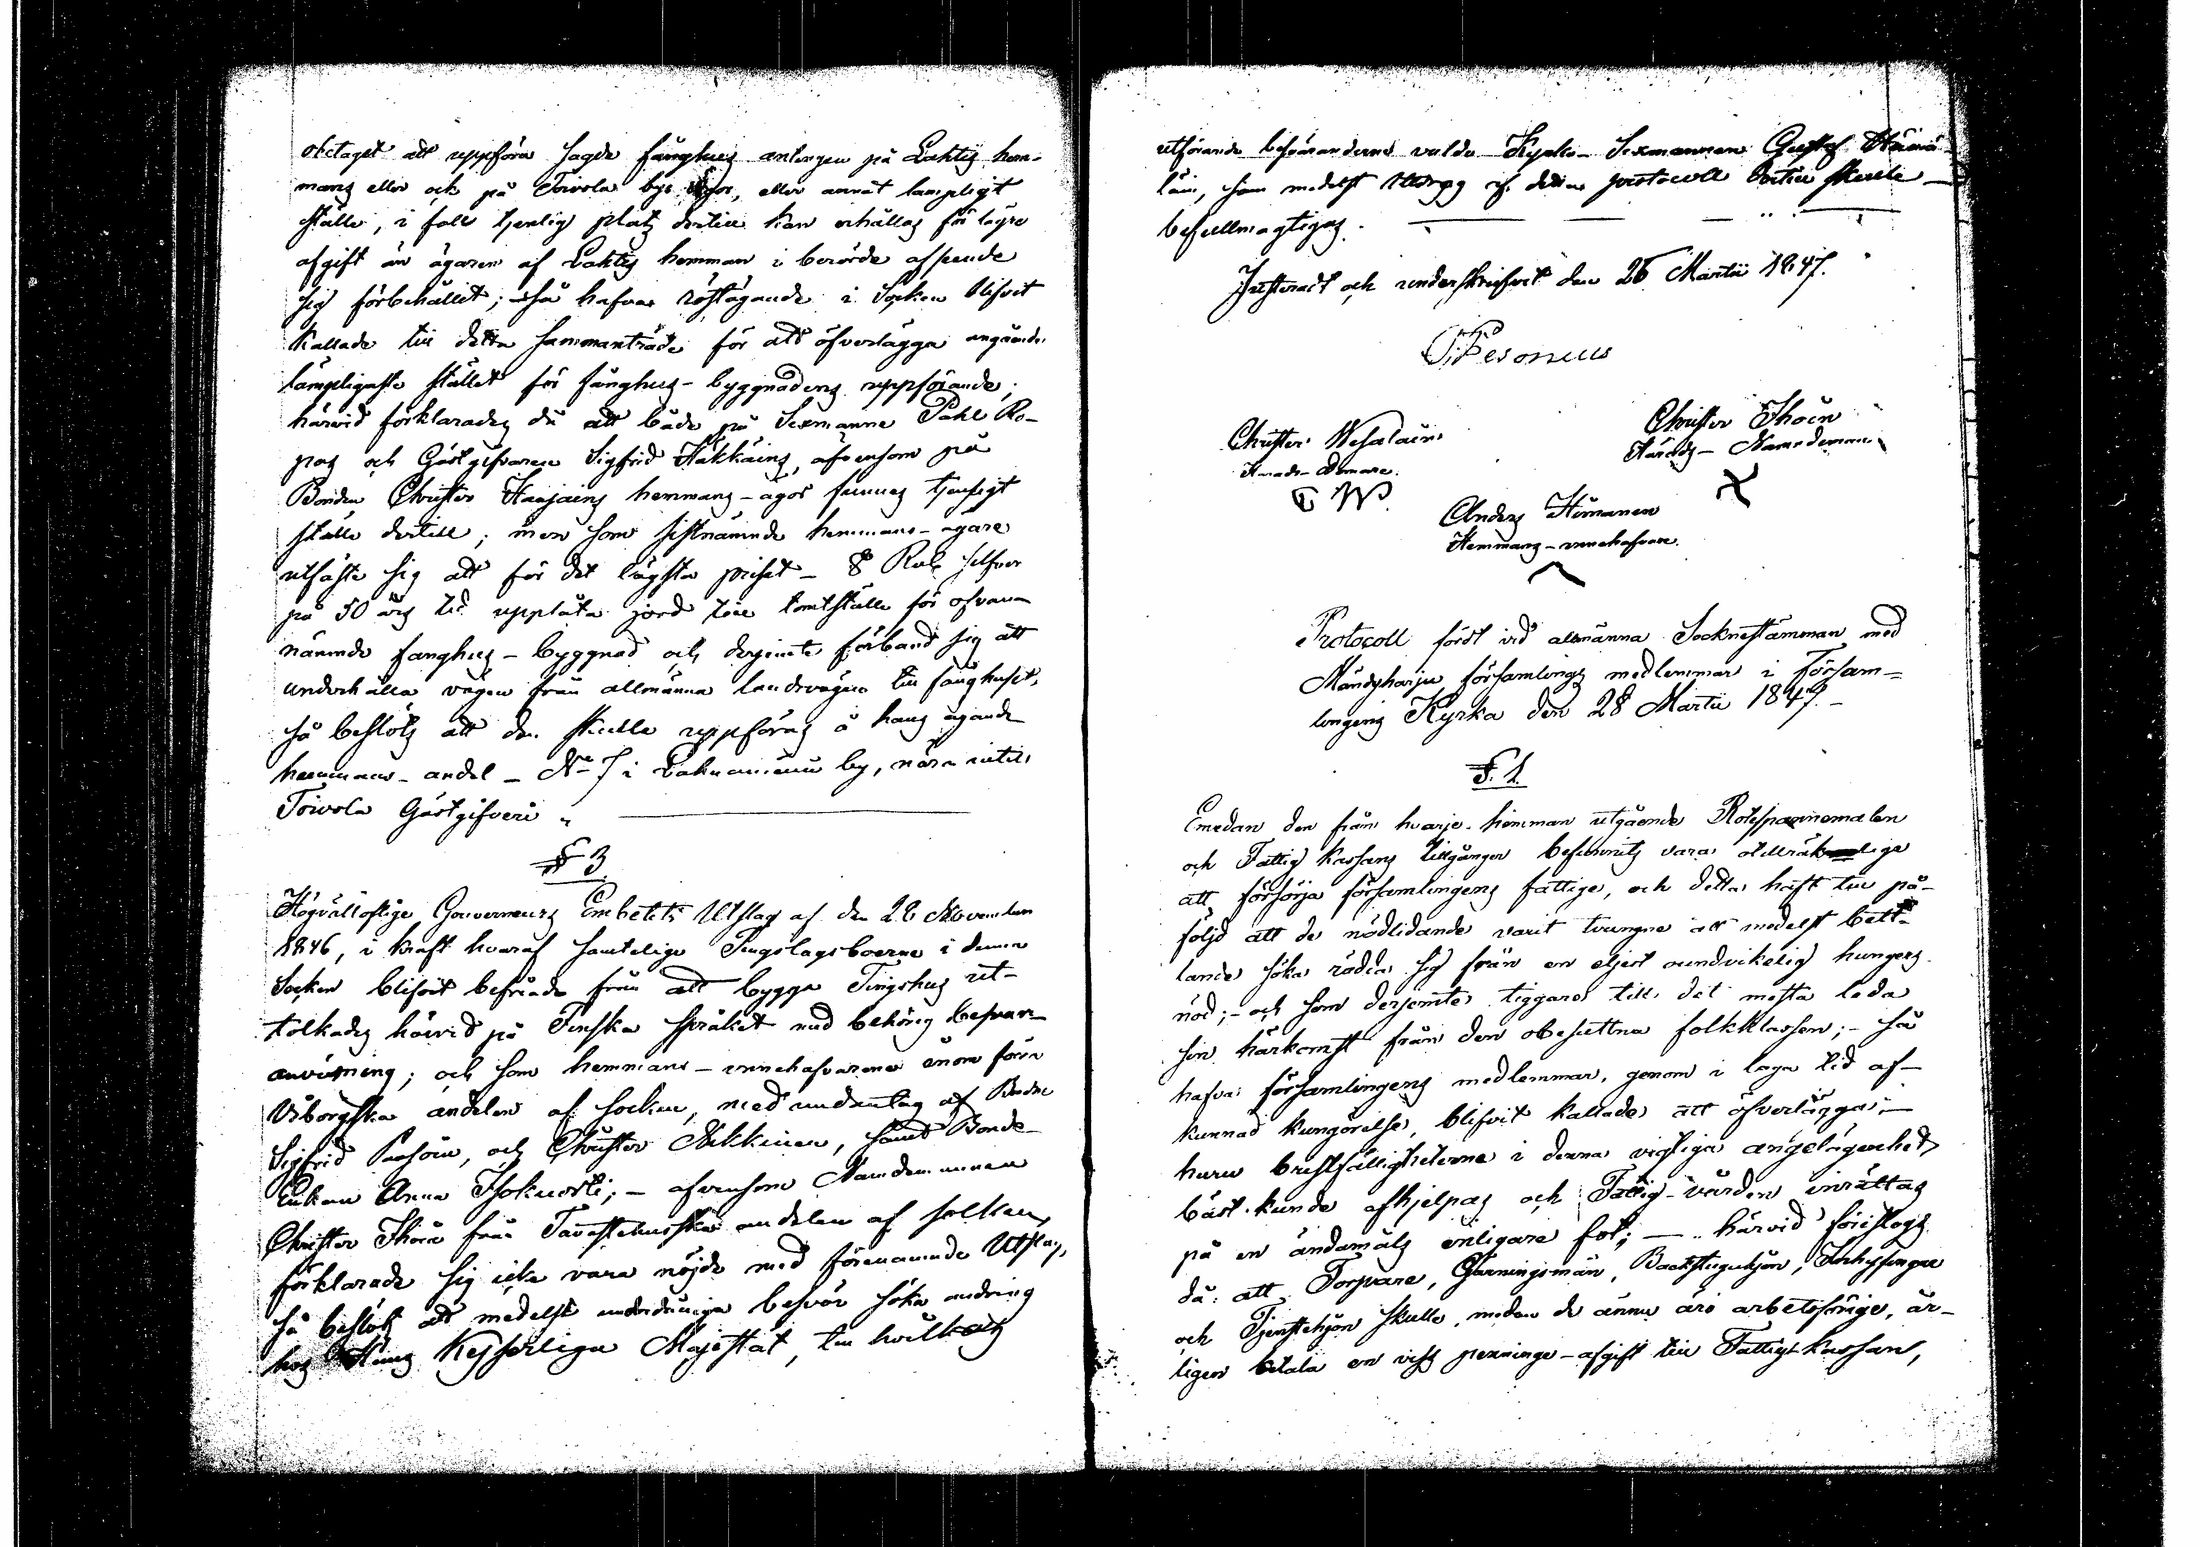 åtaget att uppföra sagde fånghus antingen på Lahtis hem-
mans eller och på Toivola bys ägor, eller annat lämpligt
ställe, i fall tjenlig plats dertill kan erhållas för lägre
afgift än ägaren af Lahtis hemman i berörde afseende
sig förbehållet; så hafva röstägande i Socken blifvit
kallade till detta sammanträde för att öfverlägga angående
lämpligaste stället för fånghus-byggnadens uppförande;
härvid förklarades då att både på Sexmanne Pahl Ro-
pos och Gästgifvaren Sigfrid Häkkäins, äfvensom på
Bonden Christer Haajains hemmans-ägor funnes tjenligt
ställe dertill; men som sistnämnde hemmans-ägare
utfäste sig att för det lägsta priset - 8 Rub. silfver
på 50 års tid upplåta jord till tomtställe för ofvan
nämnde fånghus-byggnad och derjemte förband sig att
underhålla vägen från allmänna landsvägen till fånghuset,
så beslöts att den skulle uppföras å hans ägande
hemmans-andel - No 7 i Laknamänü by, nära intill
Toivola Gästgifveri.
§ 3.
Högvällofliga Gouverneurs Embetets Utslag af den 28 November
1846, i kraft hvaraf samtelige Tingslagsboerne i denna
Socken blifvit befriade från att bygga Tingshus ut-
tolkades härvid på Finska språket med behörig besvärs-
anvisning; och som hemmans-innehafvarene inom förra
Viborgska andelen af socken, med undantag af Bonden
Sigfrid Pasoin, och Christer Nikkinen, samt Bonde-
Enkan Anna Isokuorti; - äfvensom Nämdemannen
Christer Ihoin från Tavastehusska andelen af socken,
förklarade sig icke vara nöjde med förenämnde Utslag,
så beslöts att medelst underdåniga besvär söka ändring
hos Hans Kejserliga Majestät, till hvilkas
utförande besväranderne valde Kyrko-Sexmannen Gustaf Hämä-
läin, som medelst Utdrag af detta protocoll dertill skulle
befullmägtigas.
Justeradt och underskrifvit den 26 Martii 1847.
Pesonius
Christer Vesalain
Härads-Domare.
C W.
Christer Ihoin
Härads-Nämndeman
Anders Himanen
Hemmans-innehafvare.
Protocoll fördt vid allmänna Socknestämman med
Mändyharju församlings medlemmar i Försam-
lingens Kyrka den 28 Martii 1847.
§. 1.
Emedan den från hvarje hemman utgående Rotespannemålen
och Fattig kassans tillgångar befunnits vara otillräklige
att försörja församlingens fattige, och detta haft till på-
följd att de nödlidande varit tvungne att medelst bett-
lande söka rädda sig från en eljest oundvikelig hungers
nöd; - och som derjemte tiggare till det mesta leda
sin härkomst från den obesuttna folkklassen; - så
hafva församlingens medlemmar, genom i laga tid af-
kunnad kungörelse, blifvit kallade att öfverlägga: -
huru bristfälligheterne i denna vigtiga angelägenhet
bäst kunde afhjelpas och Fattig-vården inrättas
på en ändamåls enligare fot; - härvid föreslogs
då: att Torpare, Gärningsmän, Backstuguhjon, Inhysingar
och Tjenstehjon skulle, medan de ännu äro arbetsföriga, år-
ligen betala en viss penninge-afgift till Fattigkassan,